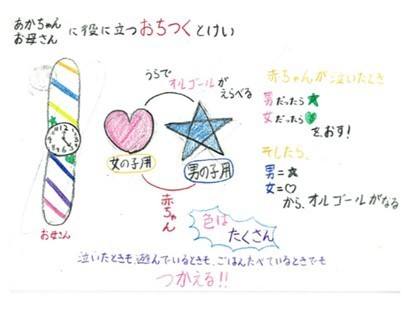 あかちゃん
お母さん に役に立つおちつくとけい
うらで
オルゴールが
えらべる
女の子用
男の子用
赤ちゃん
お母さん
赤ちゃんが泣いたとき
男だったら★
女だったら♥
をおす!
そしたら、
男=☆
女=♡
から、オルゴールがなる
色は
たくさん
泣いたときも、遊んでいるときも、ごはんたべているときでも
つかえる!!